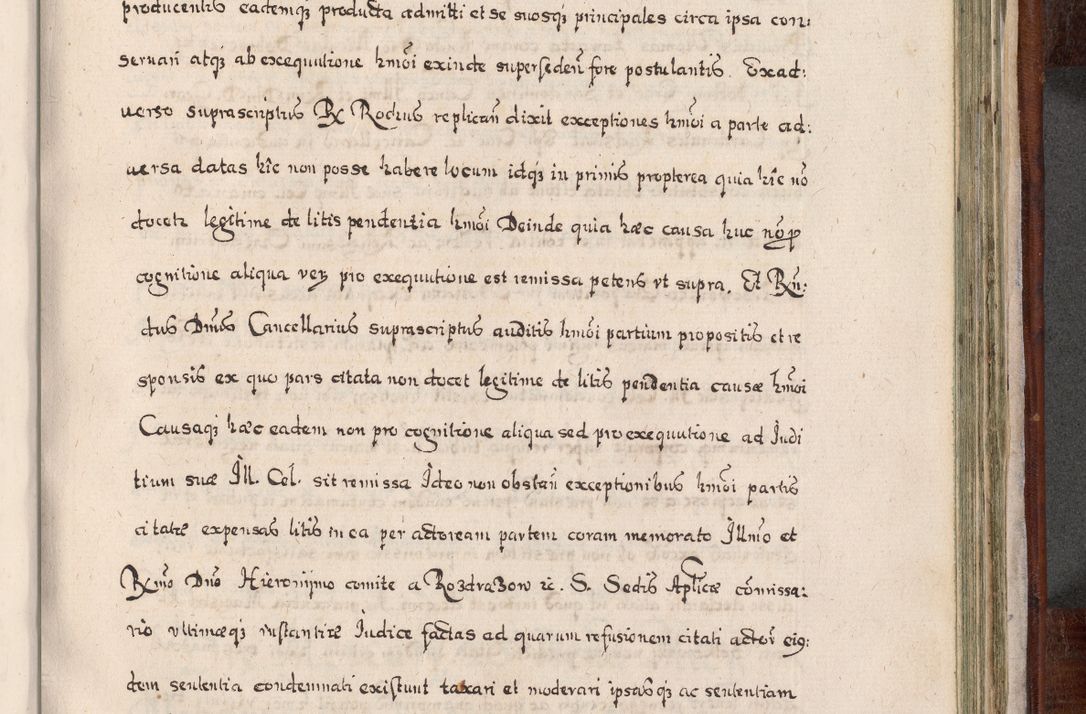 producentis eademq́ꝫ producta admitti et se suosq́ꝫ principales circa ipsa con:
servari atq́ꝫ ab exequutione hmõi exinde superseden̄ fore postulantis. Exad:
uerso suprascriptus Rx Rodius replican̄ dixit exceptiones hmõi a parte ad:
uersa datas hîc non posse habere locum idq́ꝫ in primis propterea quia hîc nõ
docetr legitime de litis pendentia hmõi Deinde quia hæc causa huc nõ p
cognitione aliqua verꝫ pro exequutione est remissa petens vt supra. Et Rn̄:
dus Dn̄us Cancellarius suprascriptus auditis hmõi partium propositis et re
sponsis ex quo pars citata non docet legitime de litis pendentia causæ hmõi
Causaq́ꝫ hæc eadem non pro cognitione aliqua sed pro exequutione ad Judi
tium suæ Ill. Cel. sit remissa Ideo non obstan̄ exceptionibus hmõi partis
citatæ expensas litis in ea per actoream partem coram memorato Illmo et
Rx̃mo Dn̄o Hieronijmo comite a Rozdrazow ꝛc. S. Sedis Aplicæ cõmissa:
rio vltimæq́ꝫ instantiæ Iudice factas ad quarum refusionem citati actor̄ eiꝯ:
dem sententia condemnati existunt taxari et moderari ipsasq́ꝫ ac sententiam